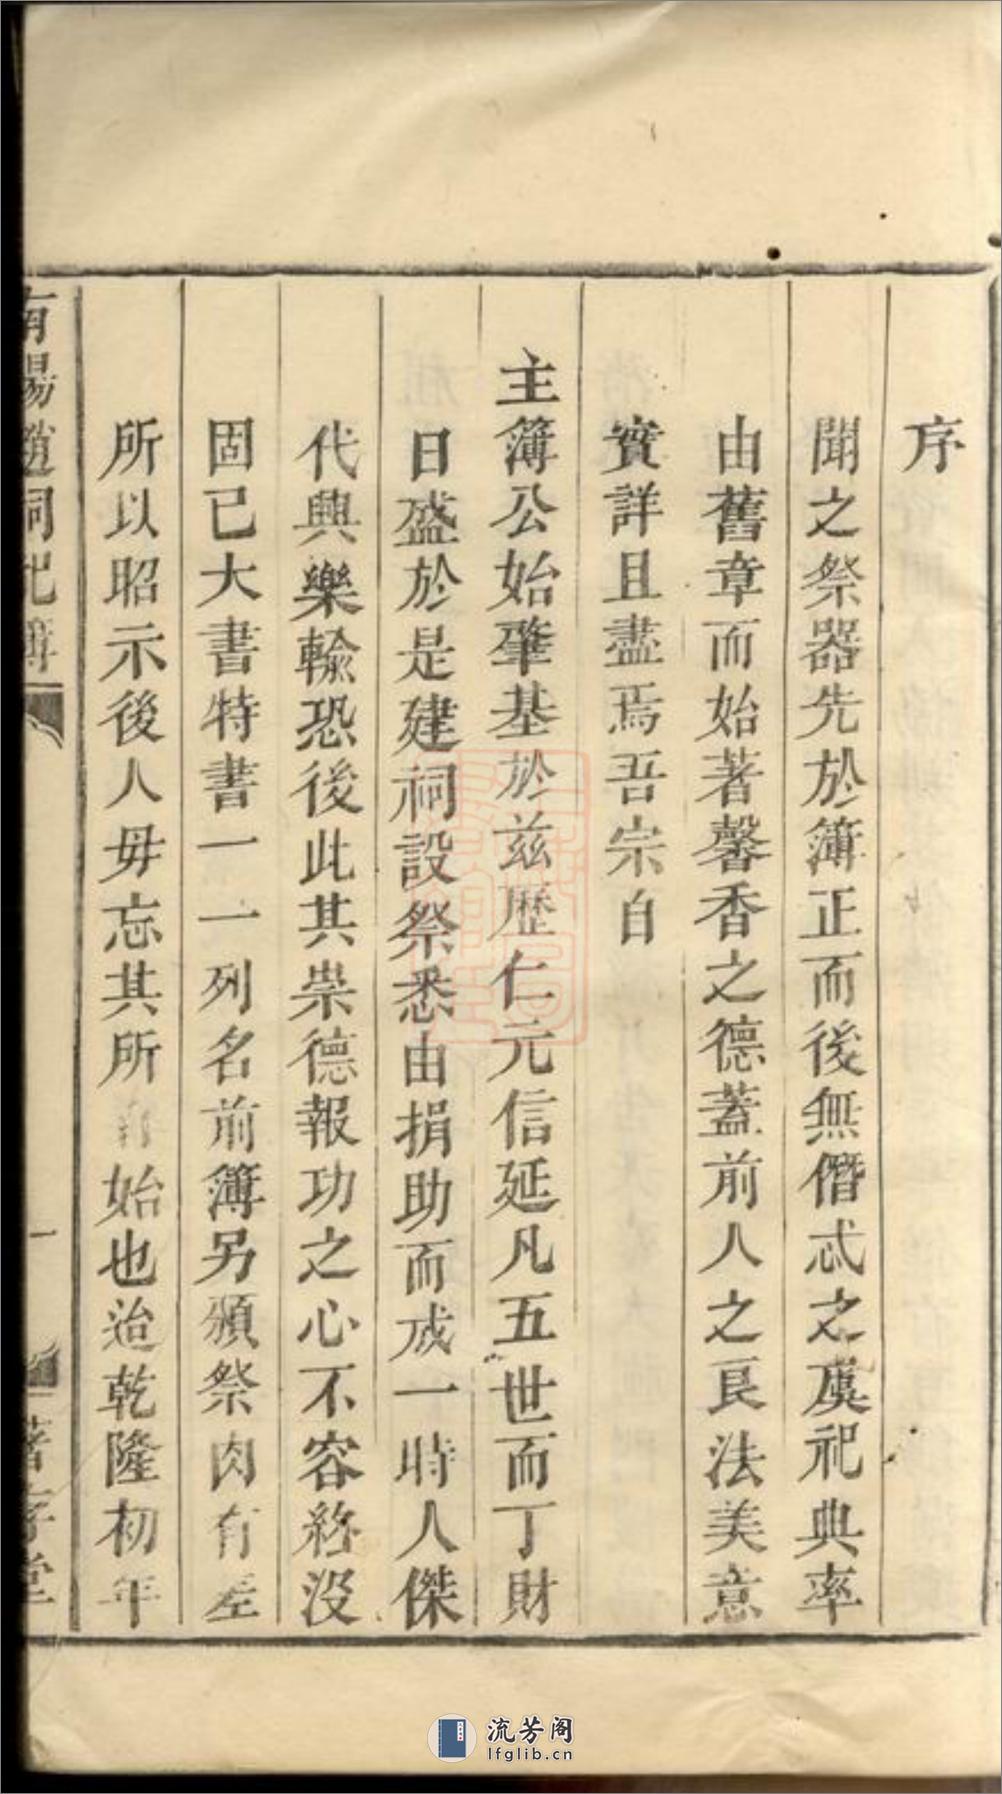 序
聞之祭器先於簿正而後無僭忒之虞祀典率
由舊章而始著馨香之德蓋前人之良法美意
實詳且盡焉吾宗自
主簿公始肇基於兹歷仁元信延凡五世而丁財
日盛於是建祠設祭悉由捐助而成一時人傑
代興樂輸恐後此其崇德報功之心不容終沒
固已大書特書一一列名前簿另頒祭肉有差
所以昭示後人毋忘其所始也迨乾隆初年
南陽趙祠祀簿
一
著存堂
流芳阁
lfglib.cn